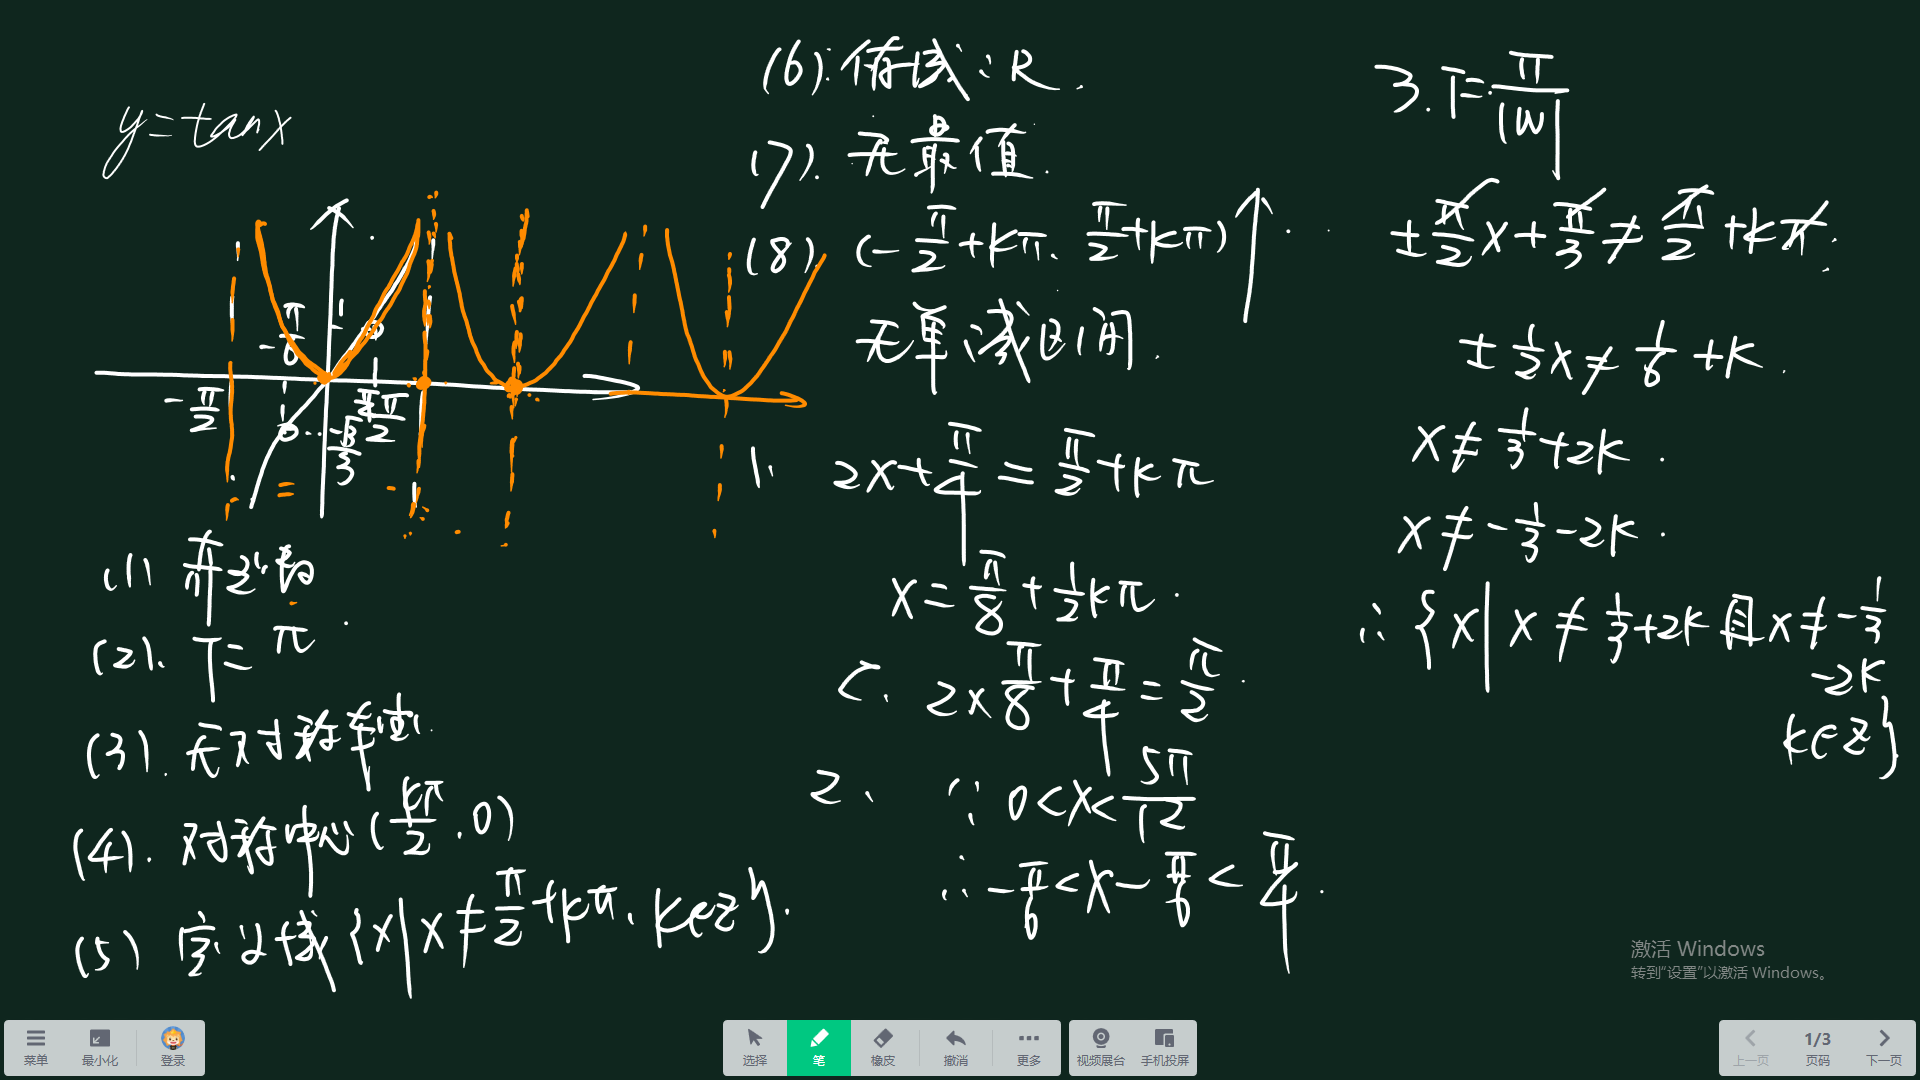 y=tanx
-π/6
1
-π/2
π/4
π/2
-√3/3
(1) 奇函数
(2). T=π
(3). 无对称轴
(4). 对称中心(kπ/2,0)
(5) 定义域{x|x≠π/2+kπ,k∈Z}.
(6). 值域:R.
(7). 无最值.
(8) (-π/2+kπ, π/2+kπ)↑
无单减区间.
1、 2x+π/4=π/2+kπ
x=π/8+1/2kπ.
C. 2×π/8+π/4=π/2.
2、 ∵ 0<x<5π/12
∴ -π/6<x-π/6<π/4.
3. T=π/|w|
±π/2x+π/3≠π/2+kπ.
±1/2x≠1/6+k.
x≠1/3+2k.
x≠-1/3-2k.
∴ {x|x≠1/3+2k且x≠-1/3
-2k
k∈Z}
激活 Windows
转到“设置”以激活 Windows。
菜单 最小化 登录 选择 笔 橡皮 撤消 更多 视频展台 手机投屏 上一页 1/3 页码 下一页